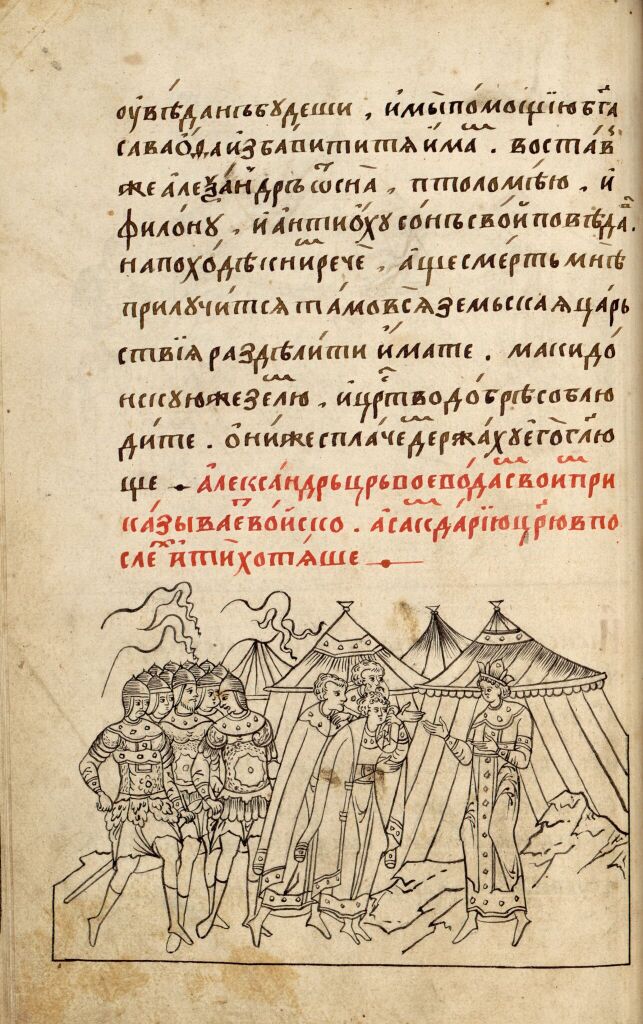 оувѣданъ будеши , и мы помощїю бга
саваѡ҆да избавити тѧ има . воставъ
же алеѯандръ ѿ сна , птоломѣю , и
филону , и антиоху сонъ свой повѣда .
на походѣ к ни рече , аще смерть мнѣ
прилучитсѧ тамо всѧ земьскаѧ царь
ствїѧ раздѣлити имате . макидо
нскую же землю , и црство добрѣ соблю
дите . они же с плачем держаху его глю
ще . александръ црь воевода свои при
казывае войско . а сам к дарїю црю в по
слех ити хотѧше .